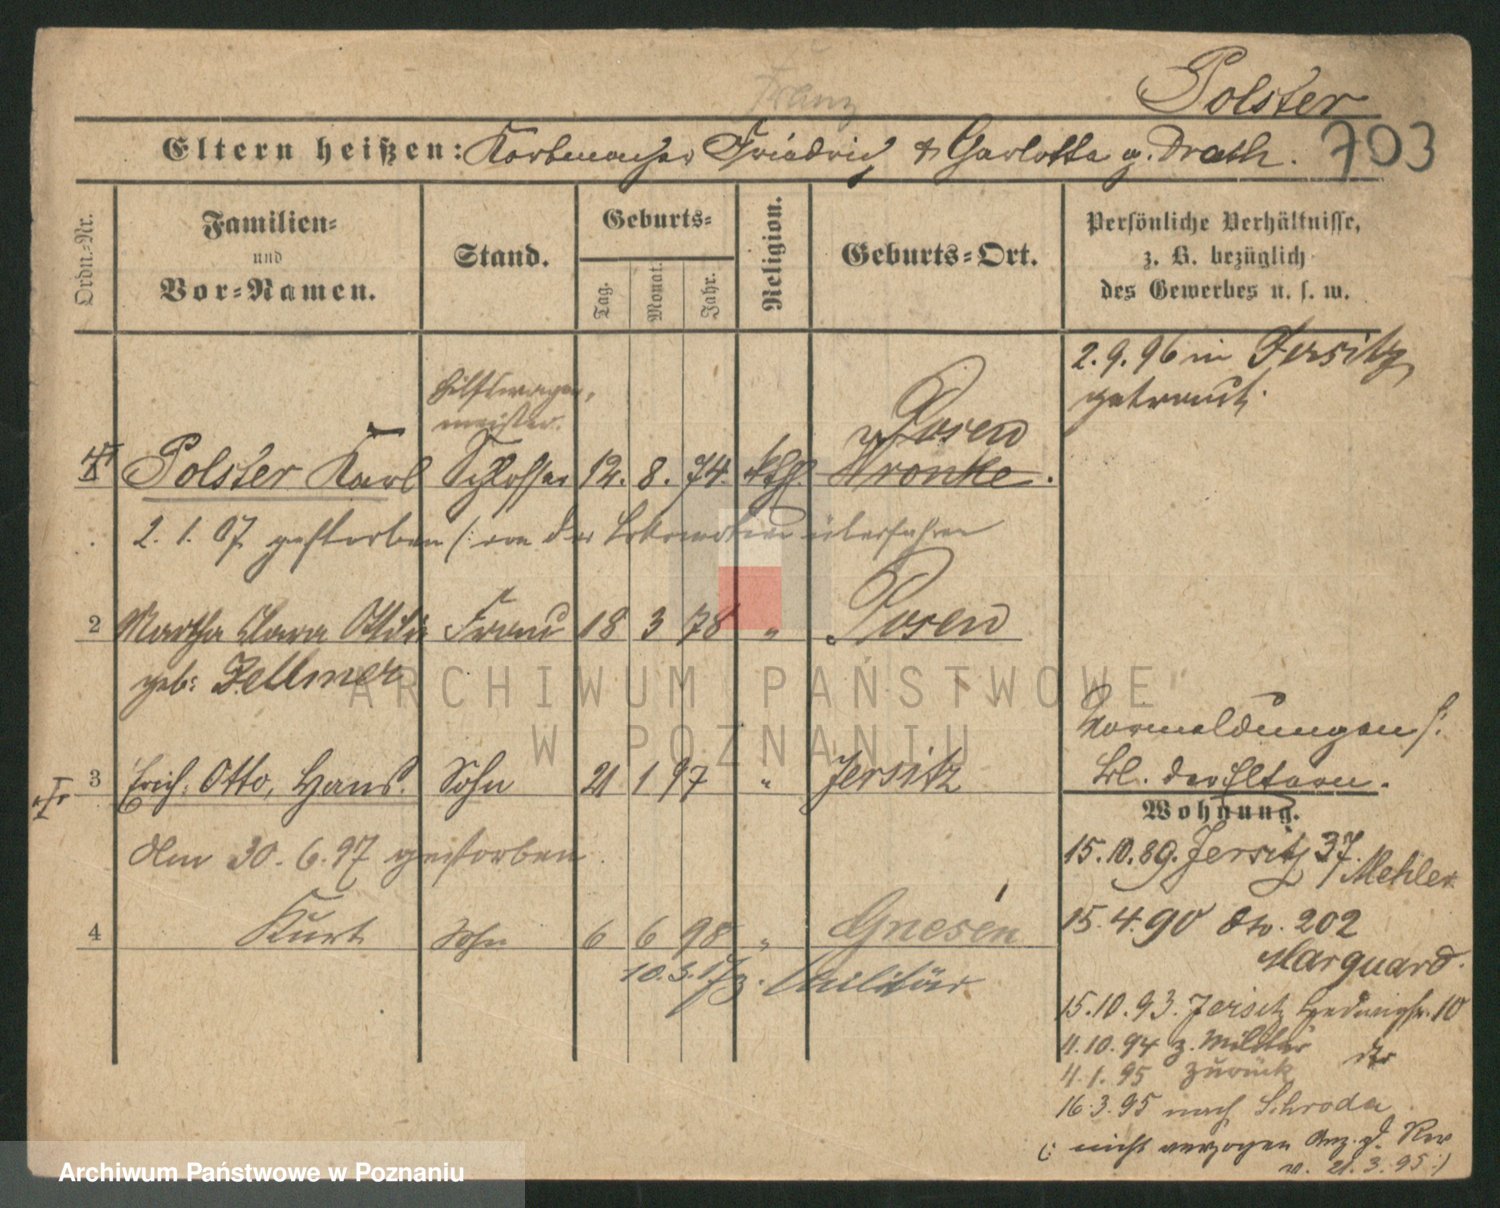 Franz
Polster
703
Eltern heißen: Korbmacher Friedrich & Charlotte g. Drath.
Ordn.-Nr.
Familien-
und
Vor-Namen.
Stand.
Geburts-
Tag.
Monat.
Jahr.
Religion.
Geburts-Ort.
Persönliche Verhältnisse,
z. B. bezüglich
des Gewerbes u. s. w.
2.9.96 in Jersitz
getraut.
Hilfswagen-
meister.
Posen
Polster Karl Schlosser 12. 8. 74. kth. Wronke.
2. 1. 07 gestorben /: von der Lokomotive überfahren
2 Martha Clara Ottilie Frau 18 3 78 " Posen
geb: Zellmer
Vormeldungen s.
bl. der Eltern.
3 Erich, Otto, Hans. Sohn 21 1 97 " Jersitz
Am 30. 6. 97 gestorben
4 Kurt Sohn 6 6 98 " Gnesen
10.3.17 z. Militär
Wohnung.
15.10.89. Jersitz 37.
Mehler
15.4.90 202
Marquard.
15.10.93. Jersitz Hedwigstr. 10
11.10.94 z. Militär
4.1.95 zurück
16.3.95 nach Schroda
(: nicht verzogen Anz. d. Rev
v. 21.3.95 :)
ARCHIWUM PAŃSTWOWE
W POZNANIU
Archiwum Państwowe w Poznaniu